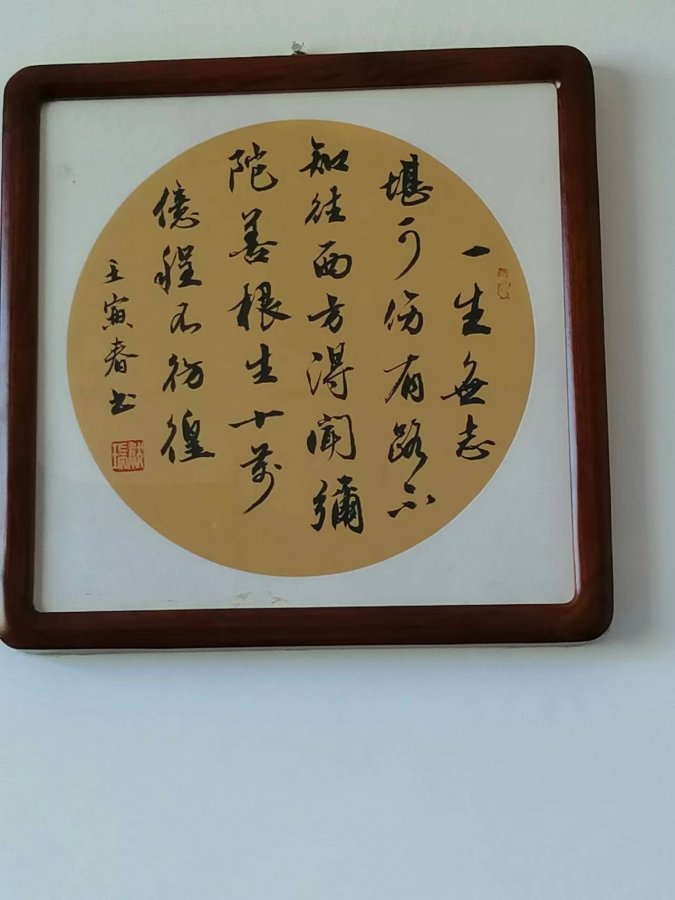 一生無志
堪可傷有路不
知往西方得聞彌
陀善根生十萬
億程不彷徨
壬寅春書